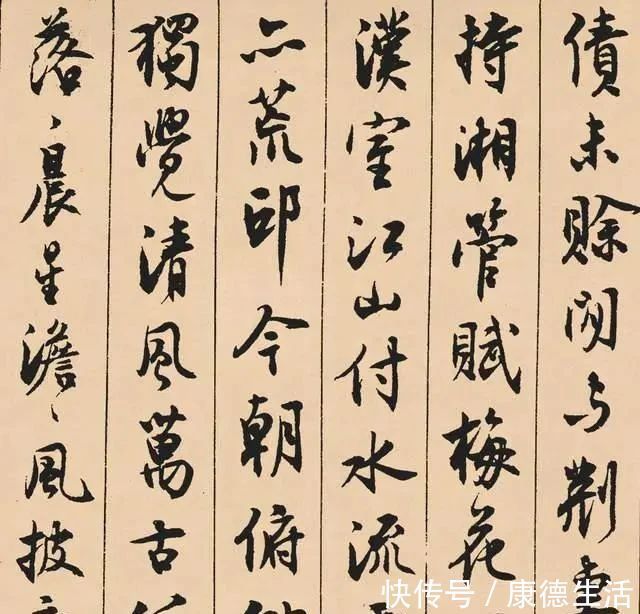 債未賒閒与荆
持湘管賦梅花
漢室江山付水流
亦荒邱今朝俯
獨覺清風萬古
落、晨星澹、風披
快传号 / 康德生活